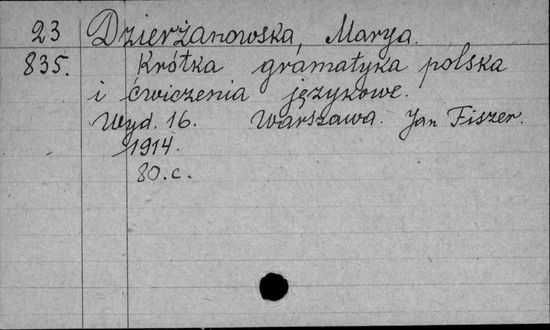 23 Dzierżanowska, Marya.
835. Krótka gramatyka polska
i ćwiczenia językowe.
Wyd. 16. Warszawa. Jan Fiszer.
1914.
80.c.